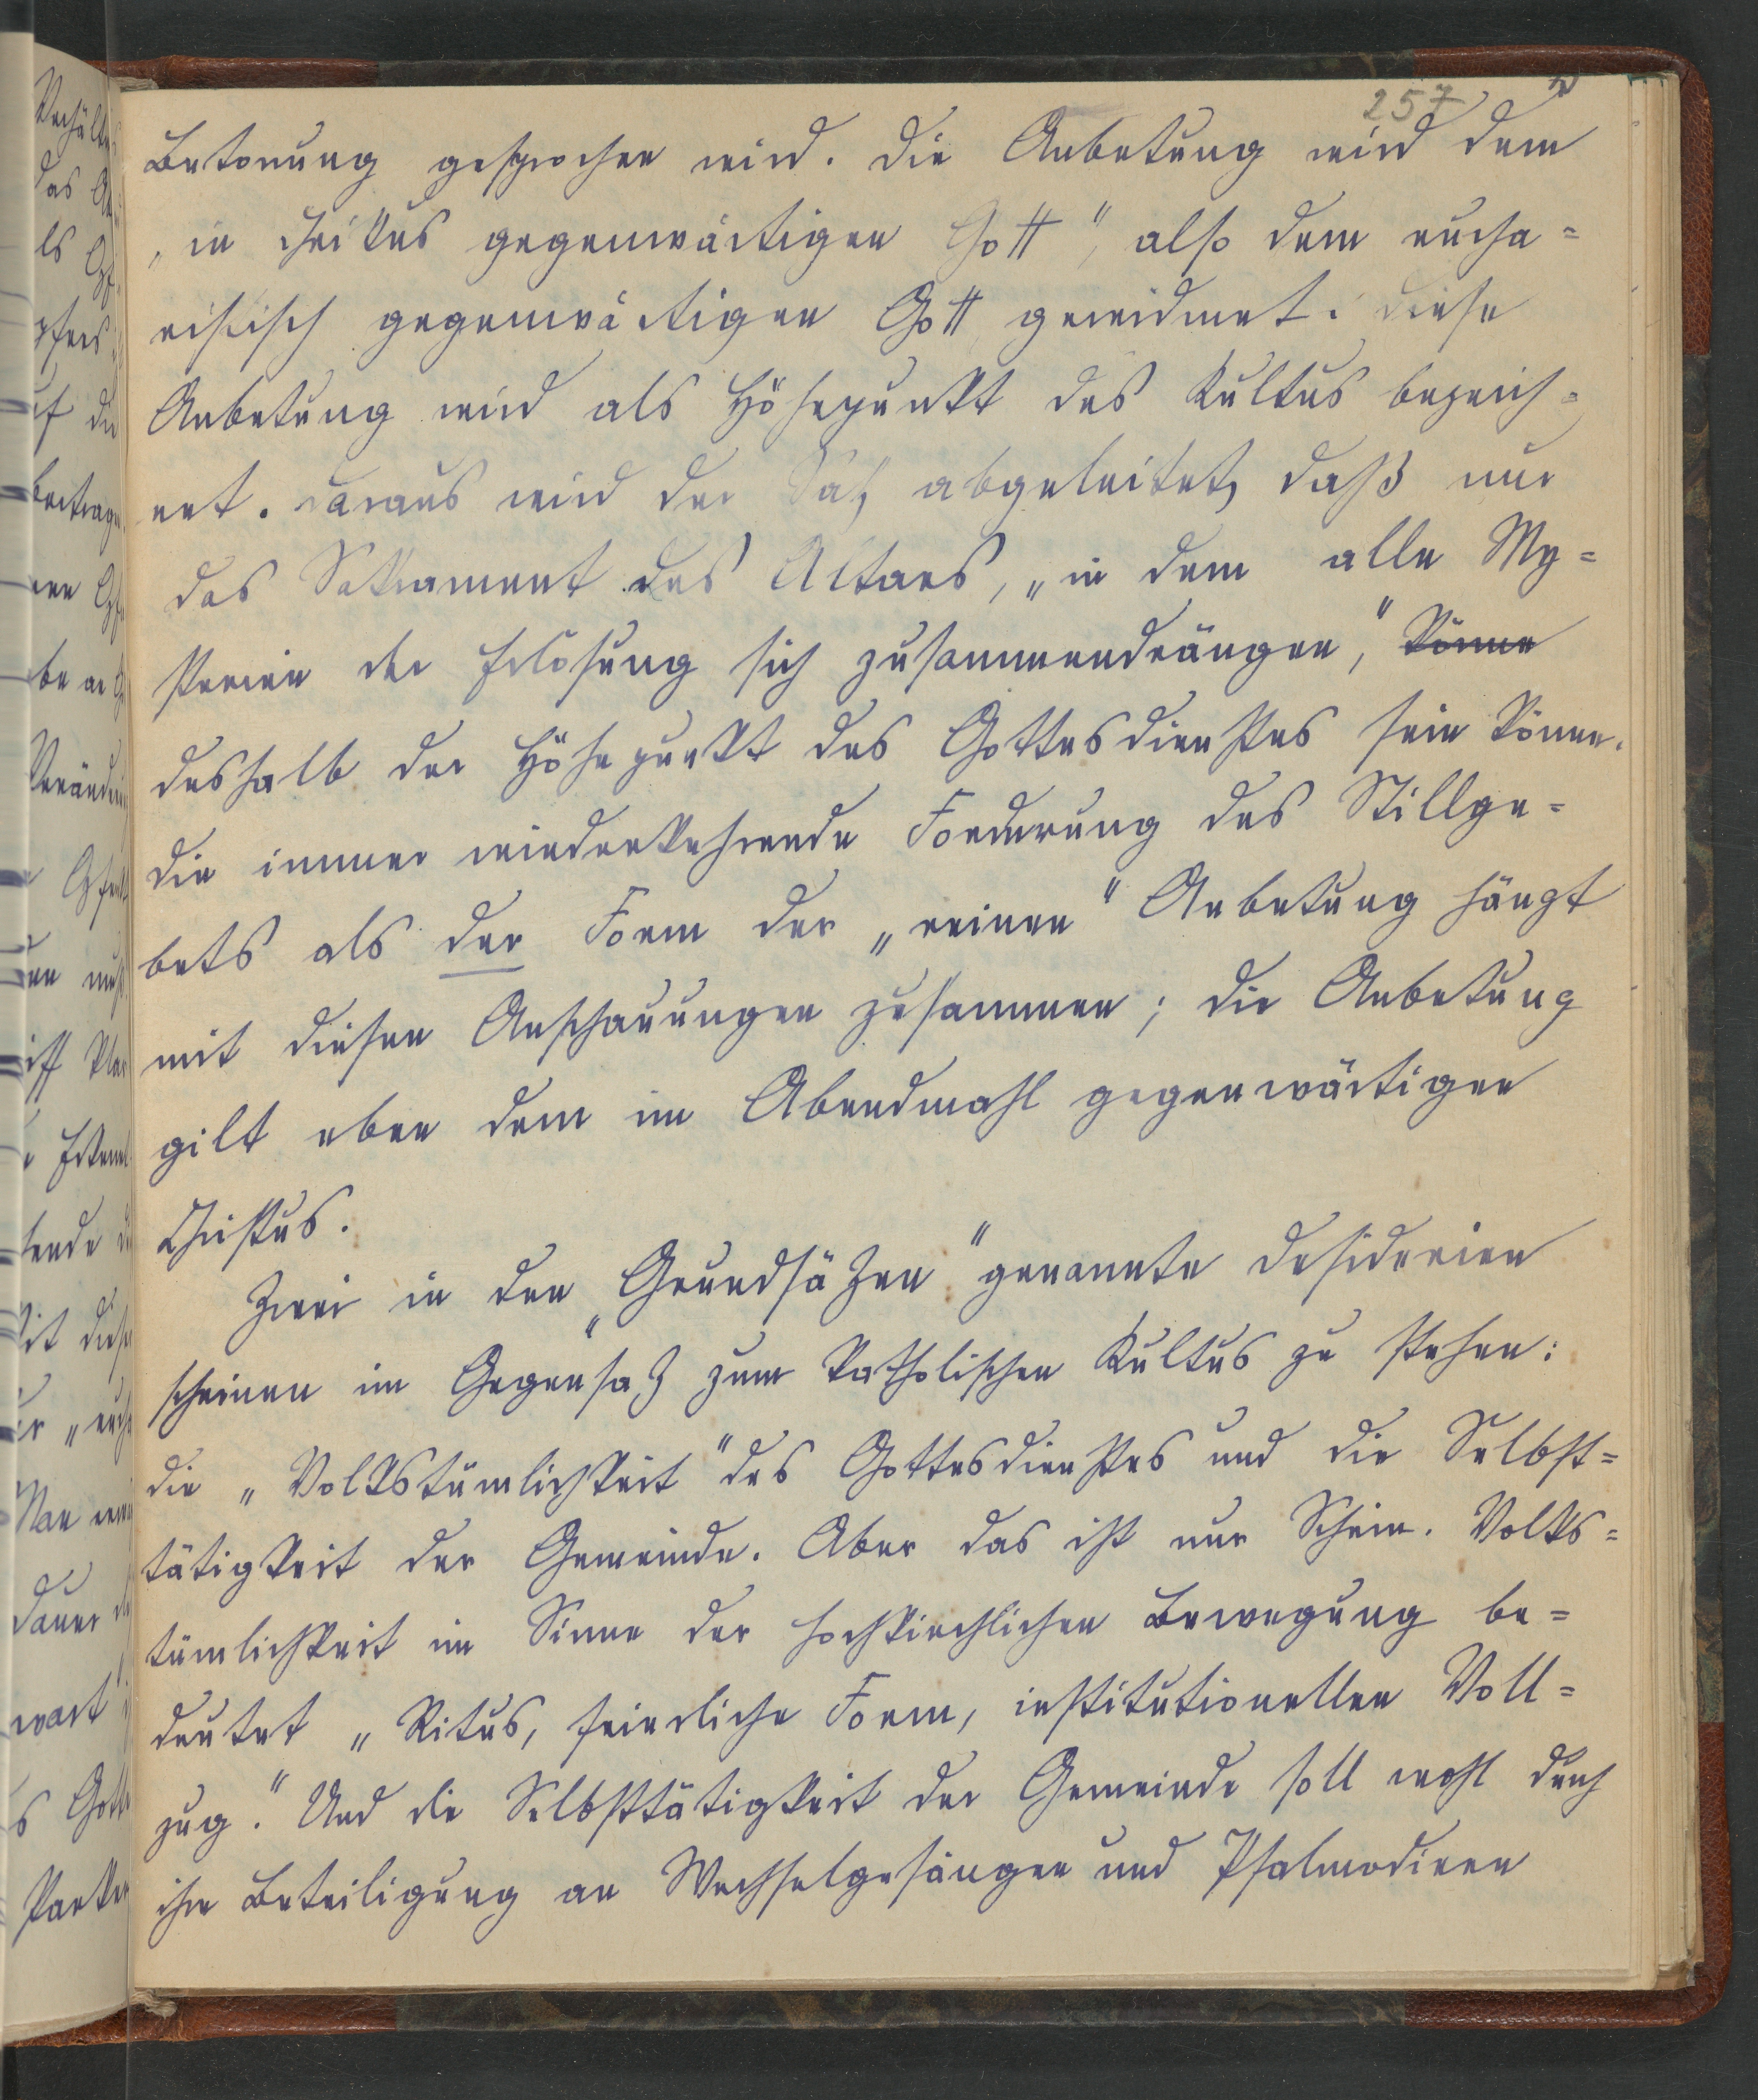 257
Betonung gesprochen wird. Die Anbetung wird dem
„in Christus gegenwärtigen Gott", also dem eucha=
ristisch gegenwärtigen Gott gewidmet. Diese
Anbetung wird als Höhepunkt des Kultus bezeich=
net. Daraus wird der Satz abgeleitet, daß nur
das Sakrament des Altars, „in dem alle My=
sterien der Erlösung sich zusammendrängen," könne
deshalb der Höhepunkt des Gottesdienstes sein könne.
Die immer wiederkehrende Forderung des Stillge=
bets als der Form der „reinen" Anbetung hängt
mit diesen Anschauungen zusammen; die Anbetung
gilt eben dem im Abendmahl gegenwärtigen
Christus.
Zwei in den „Grundsätzen" genannte Desiderien
scheinen im Gegensatz zum katholischen Kultus zu stehen:
die „Volkstümlichkeit" des Gottesdienstes und die Selbst=
tätigkeit der Gemeinde. Aber das ist nur Schein. Volks=
tümlichkeit im Sinne der hochkirchlichen Bewegung be=
deutet „Ritus, feierliche Form, institutionellen Voll=
zug." Und die Selbsttätigkeit der Gemeinde soll wohl durch
ihre Beteiligung an Wechselgesängen und Psalmodieen